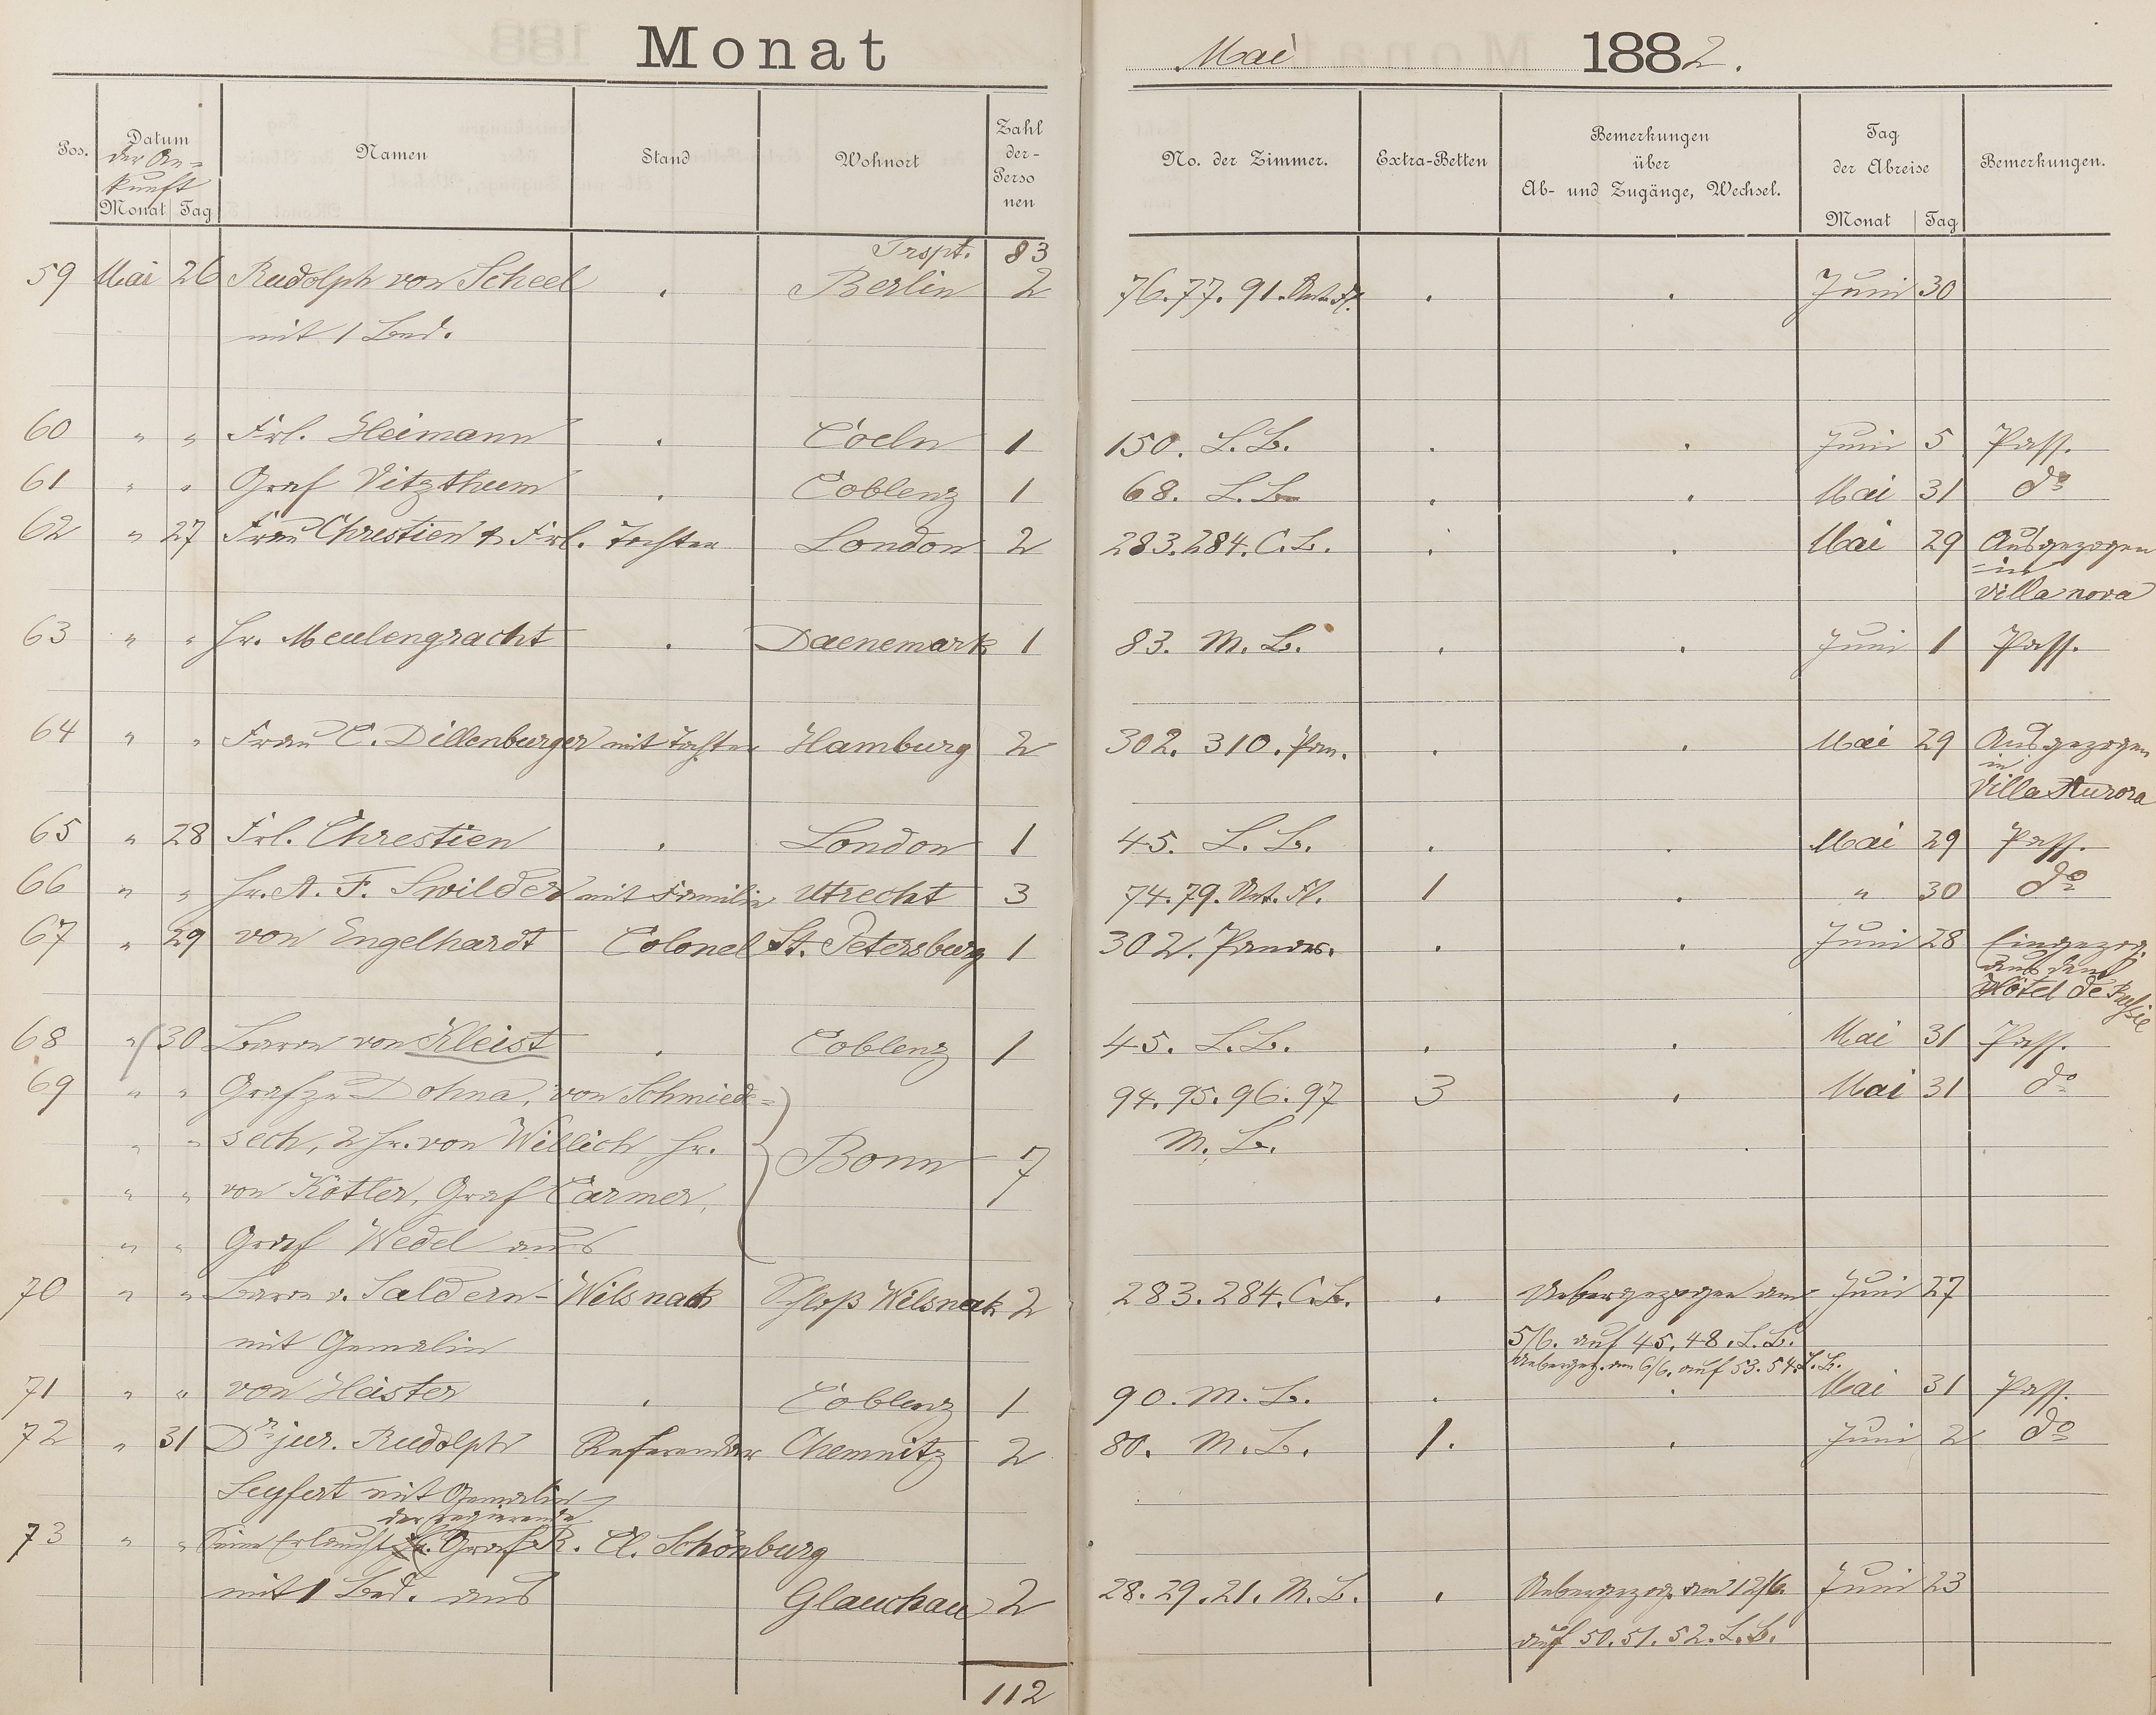 Monat Mai 1882.
Pos. Datum der An= kunft Monat Tag Namen Stand Wohnort Zahl der- Perso nen No. der Zimmer. Extra-Betten Bemerkungen über Ab- und Zugänge, Wechsel. Tag der Abreise Monat Tag Bemerkungen.
Trspt. 83
59 Mai 26 Rudolph von Scheel . Berlin 2 76.77.91. . . Juni 30
mit 1 Bed.
60 " " Frl. Heimann . Coeln 1 150. L. B. . . Juni 5 Pass.
61 " " Graf Vitzthum . Coblenz 1 68. L. B. . . Mai 31 do
62 " 27 Frau Chrestien & Frl. Tochter London 2 283.284. C. B. . . Mai 29 Ausgezogen
in
Villa nova
63 " " Hr. Meulengracht . Daenemark 1 83. M. B. . . Juni 1 Pass.
64 " " Frau C. Dillenburger mit Tochter Hamburg 2 302. 310. Pan. . . Mai 29 Ausgezogen
in
Villa Aurora
65 " 28 Frl. Chrestien . London 1 45. L. B. . . Mai 29 Pass.
66 " " Hr. A. F. Swilder mit Familie Utrecht 3 74.79. 1 . " 30 do
67 " 29 von Engelhardt Colonel St. Petersburg 1 302. . . Juni 28 Eingezog.
aus dem
Hôtel de Russie
68 " 30 Baron von Kleist . Coblenz 1 45. L. B. . . Mai 31 Pass.
69 " " Graf zu Dohna, von Schmiede= 94.95.96.97 3 . Mai 31 do
" " sech, 2 Hr. von Willich, Hr. Bonn 7 M. B. .
" " von Kötler, Graf Carmer,
" " Graf Wedel aus
70 " " Baron v. Saldern-Wilsnack Schloß Wilsnak 2 283.284. C. B. . Uebergezogen am Juni 27
mit Gemalin 5/6. auf 45.48. L. B.
Uebergez. am 6/6. auf 53.54. L. B.
71 " " von Heister . Coblenz 1 90. M. B. . . Mai 31 Pass.
72 " 31 Dr jur. Rudolph Referendar Chemnitz 2 80. M. B. 1. . Juni 2 do
Seyfert mit Gemalin
der regierende
73 " " Seine Erlaucht Hr. Graf R. Cl. Schönburg
mit 1 Bed. aus Glauchau 2 28.29.21. M. B. . Uebergezog. am 12/6. Juni 23
auf 50.51.52. L. B.
112